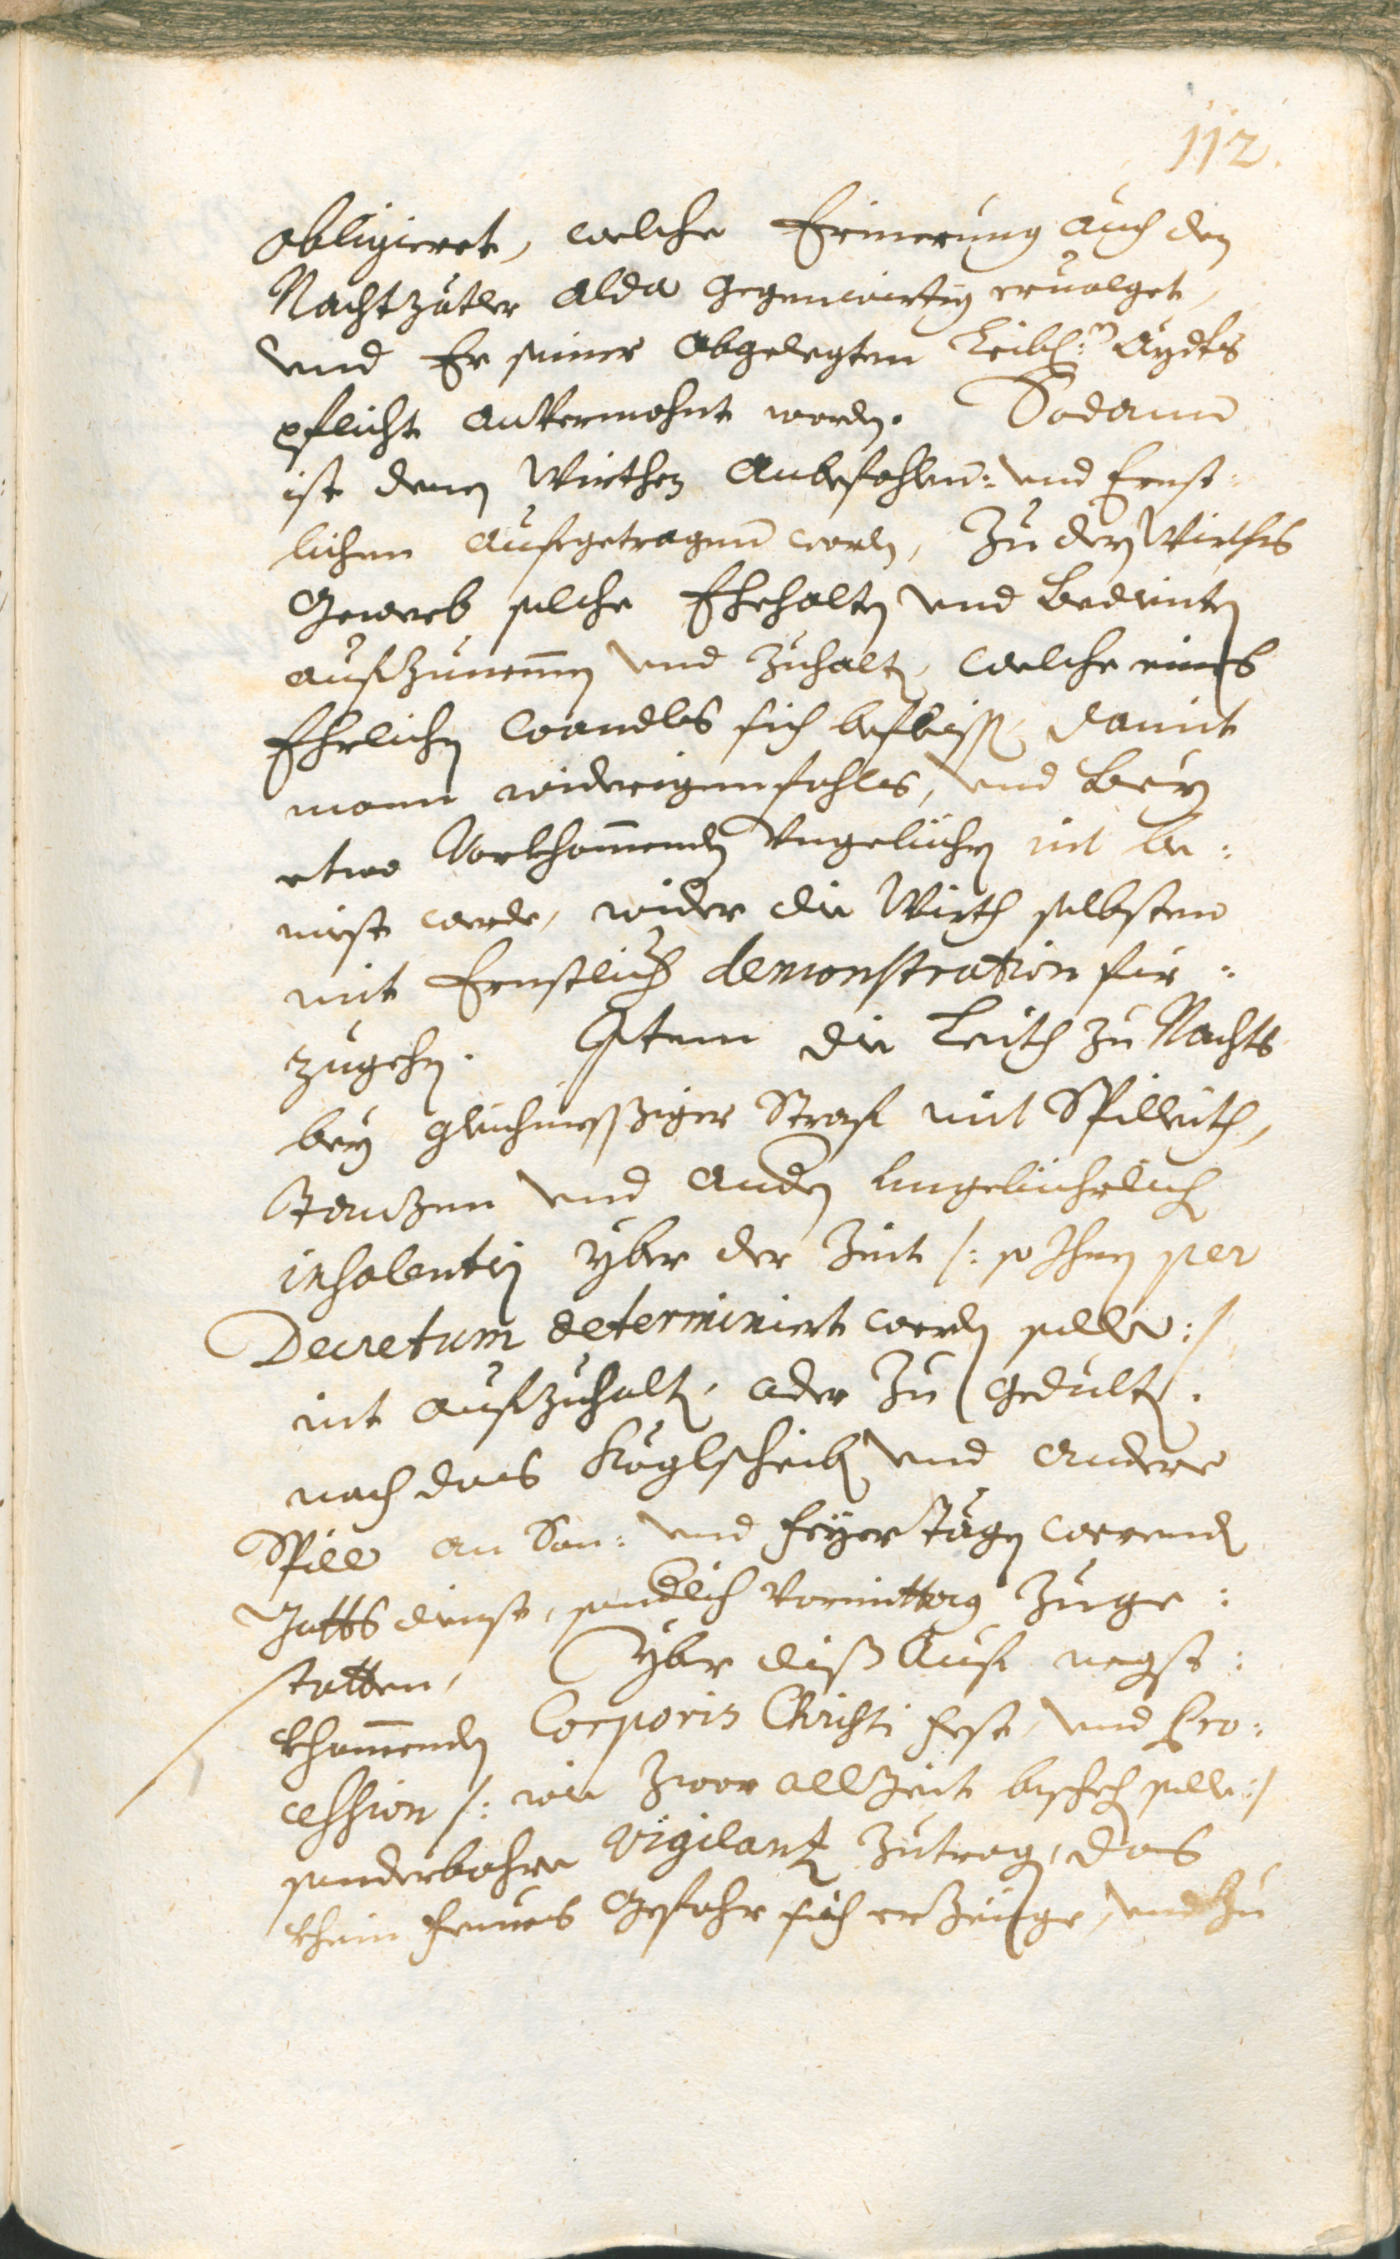 112.
obligieret, welche Erinerung auch den
Nachtzätler alda gegenwirtig ervolget,
vnd Er seiner abgelegten Leibl:n Aydts
pflicht anVermahnt worden. Sodann
ist denen Wirthen Anbefohlen: vnd Ernst-
lichen aufgetragen worden, Zu den Wirths
Gewerb solche Ehehalten vnd Bediente
aufzunemmen vnd zuhalten, welche eines
Ehrlichen wandls sich befleissen, damit
mann widerigenfahls, vnd Bey
etwo Vorkhommenden Vngebüehren nit be-
miest werde, wider die Wirth selbsten
mit Ernstlicher demonstration für-
zugehen. Item die Leith zu Nachts
bey gleichmessziger Straf mit Spilleith,
Tanzen vnd andern Vngebührlichen
insolentien yber der Zeit /: so Ihnen per
Decretum determiniert werden solle :/
nit aufzuhalten, oder zu gedulten.
noch das Köglscheiben vnd andere
Spill an Son: vnd Feyertägen werenden
Gotts dienst, sondlich Vormittag Zuge-
statten, Yber diß Auf negst-
khommenden Corporis Christi Fest, vnd Pro-
cession /: wie zwar allzeit beschechen solle :/
sonderbahre Vigilanz zutragen, das
khein Feuers Gefahr sich erzeige, vnd zu